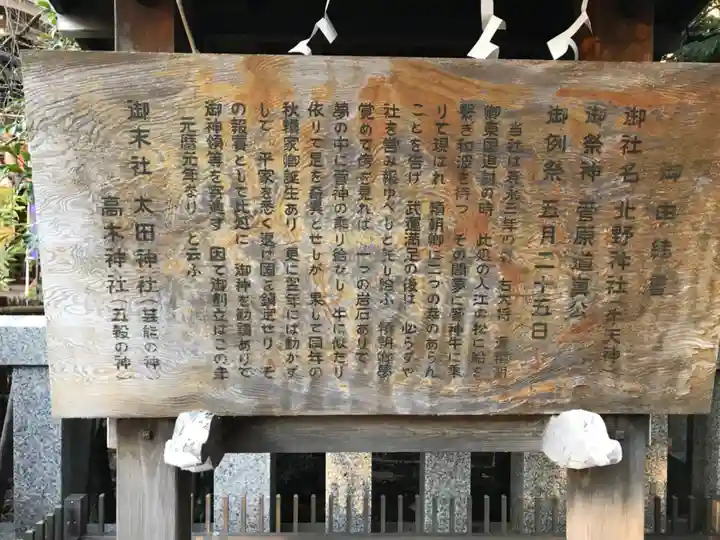 御由緒書
御社名 北野神社（牛天神）
御祭神 菅原道真公
御例祭 五月二十五日
当社は寿永三年の 右大将 源頼朝
御東国追討の時 此処の入江の松に船を
繋ぎ和波を待つ その間夢に菅神牛に乗
りて現はれ 頼朝卿に二つの幸のあらん
ことを告げ 武運満足の後は 必らずや
社を営み報ゆべしと宣し給ふ 頼朝御夢
覚めて傍を見れば 一つの岩石ありて
夢の中に菅神の乗り給ひし 牛に似たり
依りて是を奇異とせしが 果して同年の
秋頼家卿誕生あり 更に翌年には動かず
して 平家を悉く退け国を鎮定せり そ
の報賽として此処に 御神を勧請ありて
御神領等を寄進す 因て御創立はこの年
元暦元年なり と云ふ
御末社 太田神社（芸能の神）
高木神社（五穀の神）